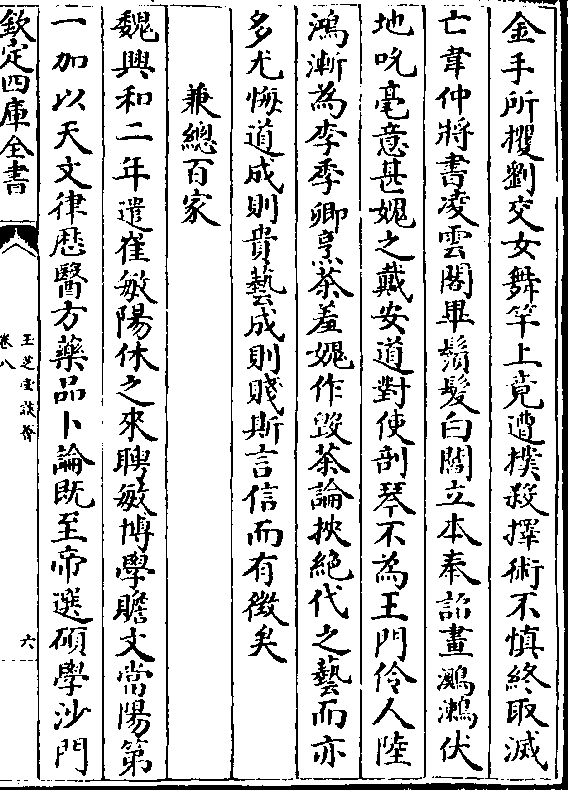 金手所攫劉交女舞竿上竟遭撲殺擇術不慎終取滅
亡韋仲將書凌雲閣畢鬚髮白閻立本奉詔畫鸂鶒伏
地吮毫意甚媿之戴安道對使剖琴不為王門伶人陸
鴻漸為李季卿烹茶羞媿作毀茶論挾絶代之藝而亦
多尤悔道成則貴藝成則賤斯言信而有徵矣
兼總百家
魏興和二年遣崔敏陽休之來聘敏博學贍文當陽第
一加以天文律歴醫方藥品卜論既至帝選碩學沙門
欽定四庫全書
玉芝堂談薈
卷八
六